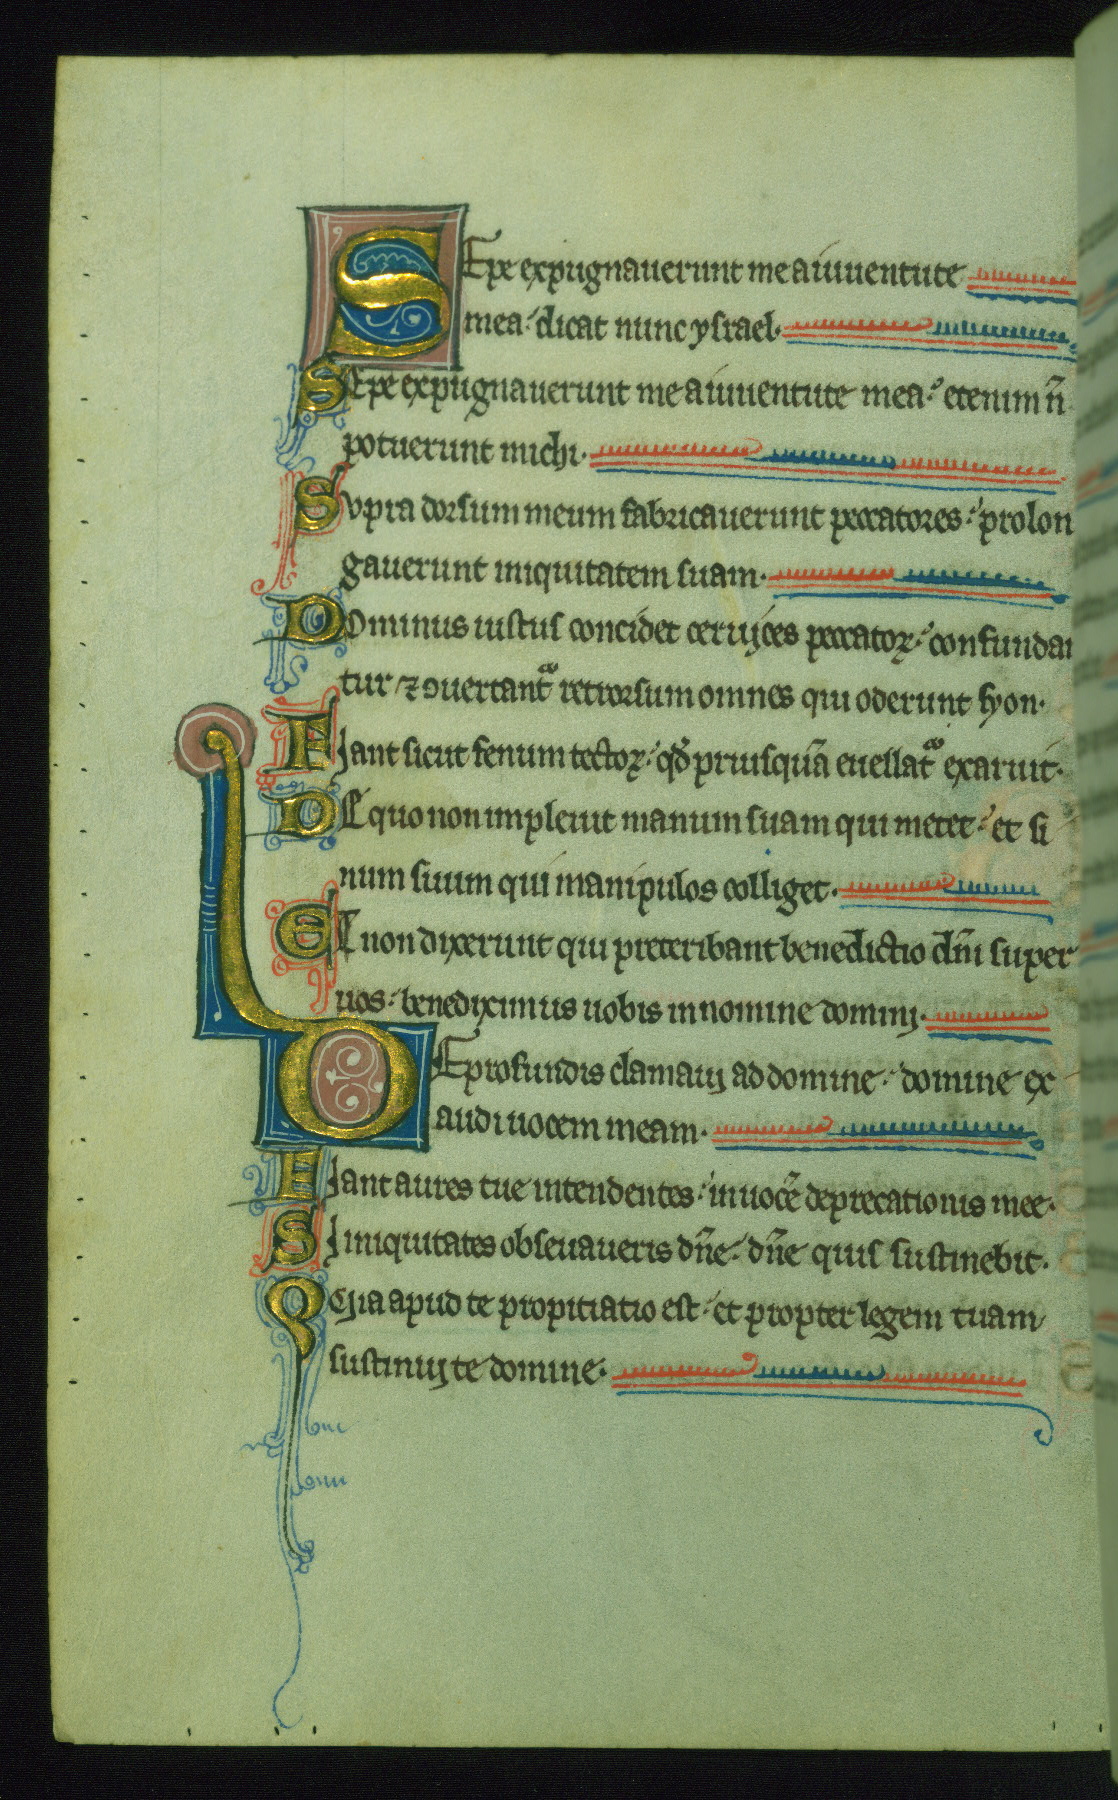 SEpe expugnauerunt me a iuuentute
mea: dicat nunc ysrael.
SEpe expugnauerunt me a iuuentute mea: etenim n̄
potuerunt michi.
Svpra dorsum meum fabricauerunt peccatores: prolon
gauerunt iniquitatem suam.
DOminus iustus concidet ceruices peccatoꝝ: confundan
tur ⁊ ꝯuertant᷑ retrorsum omnes qui oderunt syon.
Fiant sicut fenum tectoꝝ: qd̄ priusquā euellat᷑ exaruit.
DE quo non impleuit manum suam qui metet: et si
num suum qui manipulos colliget.
Et non dixerunt qui preteribant benedictio dn̄i super
uos: benediximus uobis in nomine domini.
DE profundis clamaui ad domine: domine ex
audi uocem meam.
Fiant aures tue intendentes: in uocē deprecationis mee.
Si iniquitates obseuaueris dn̄e: dn̄e quis sustinebit.
Quia apud te propitiatio est: et propter legem tuam
sustinui te domine.